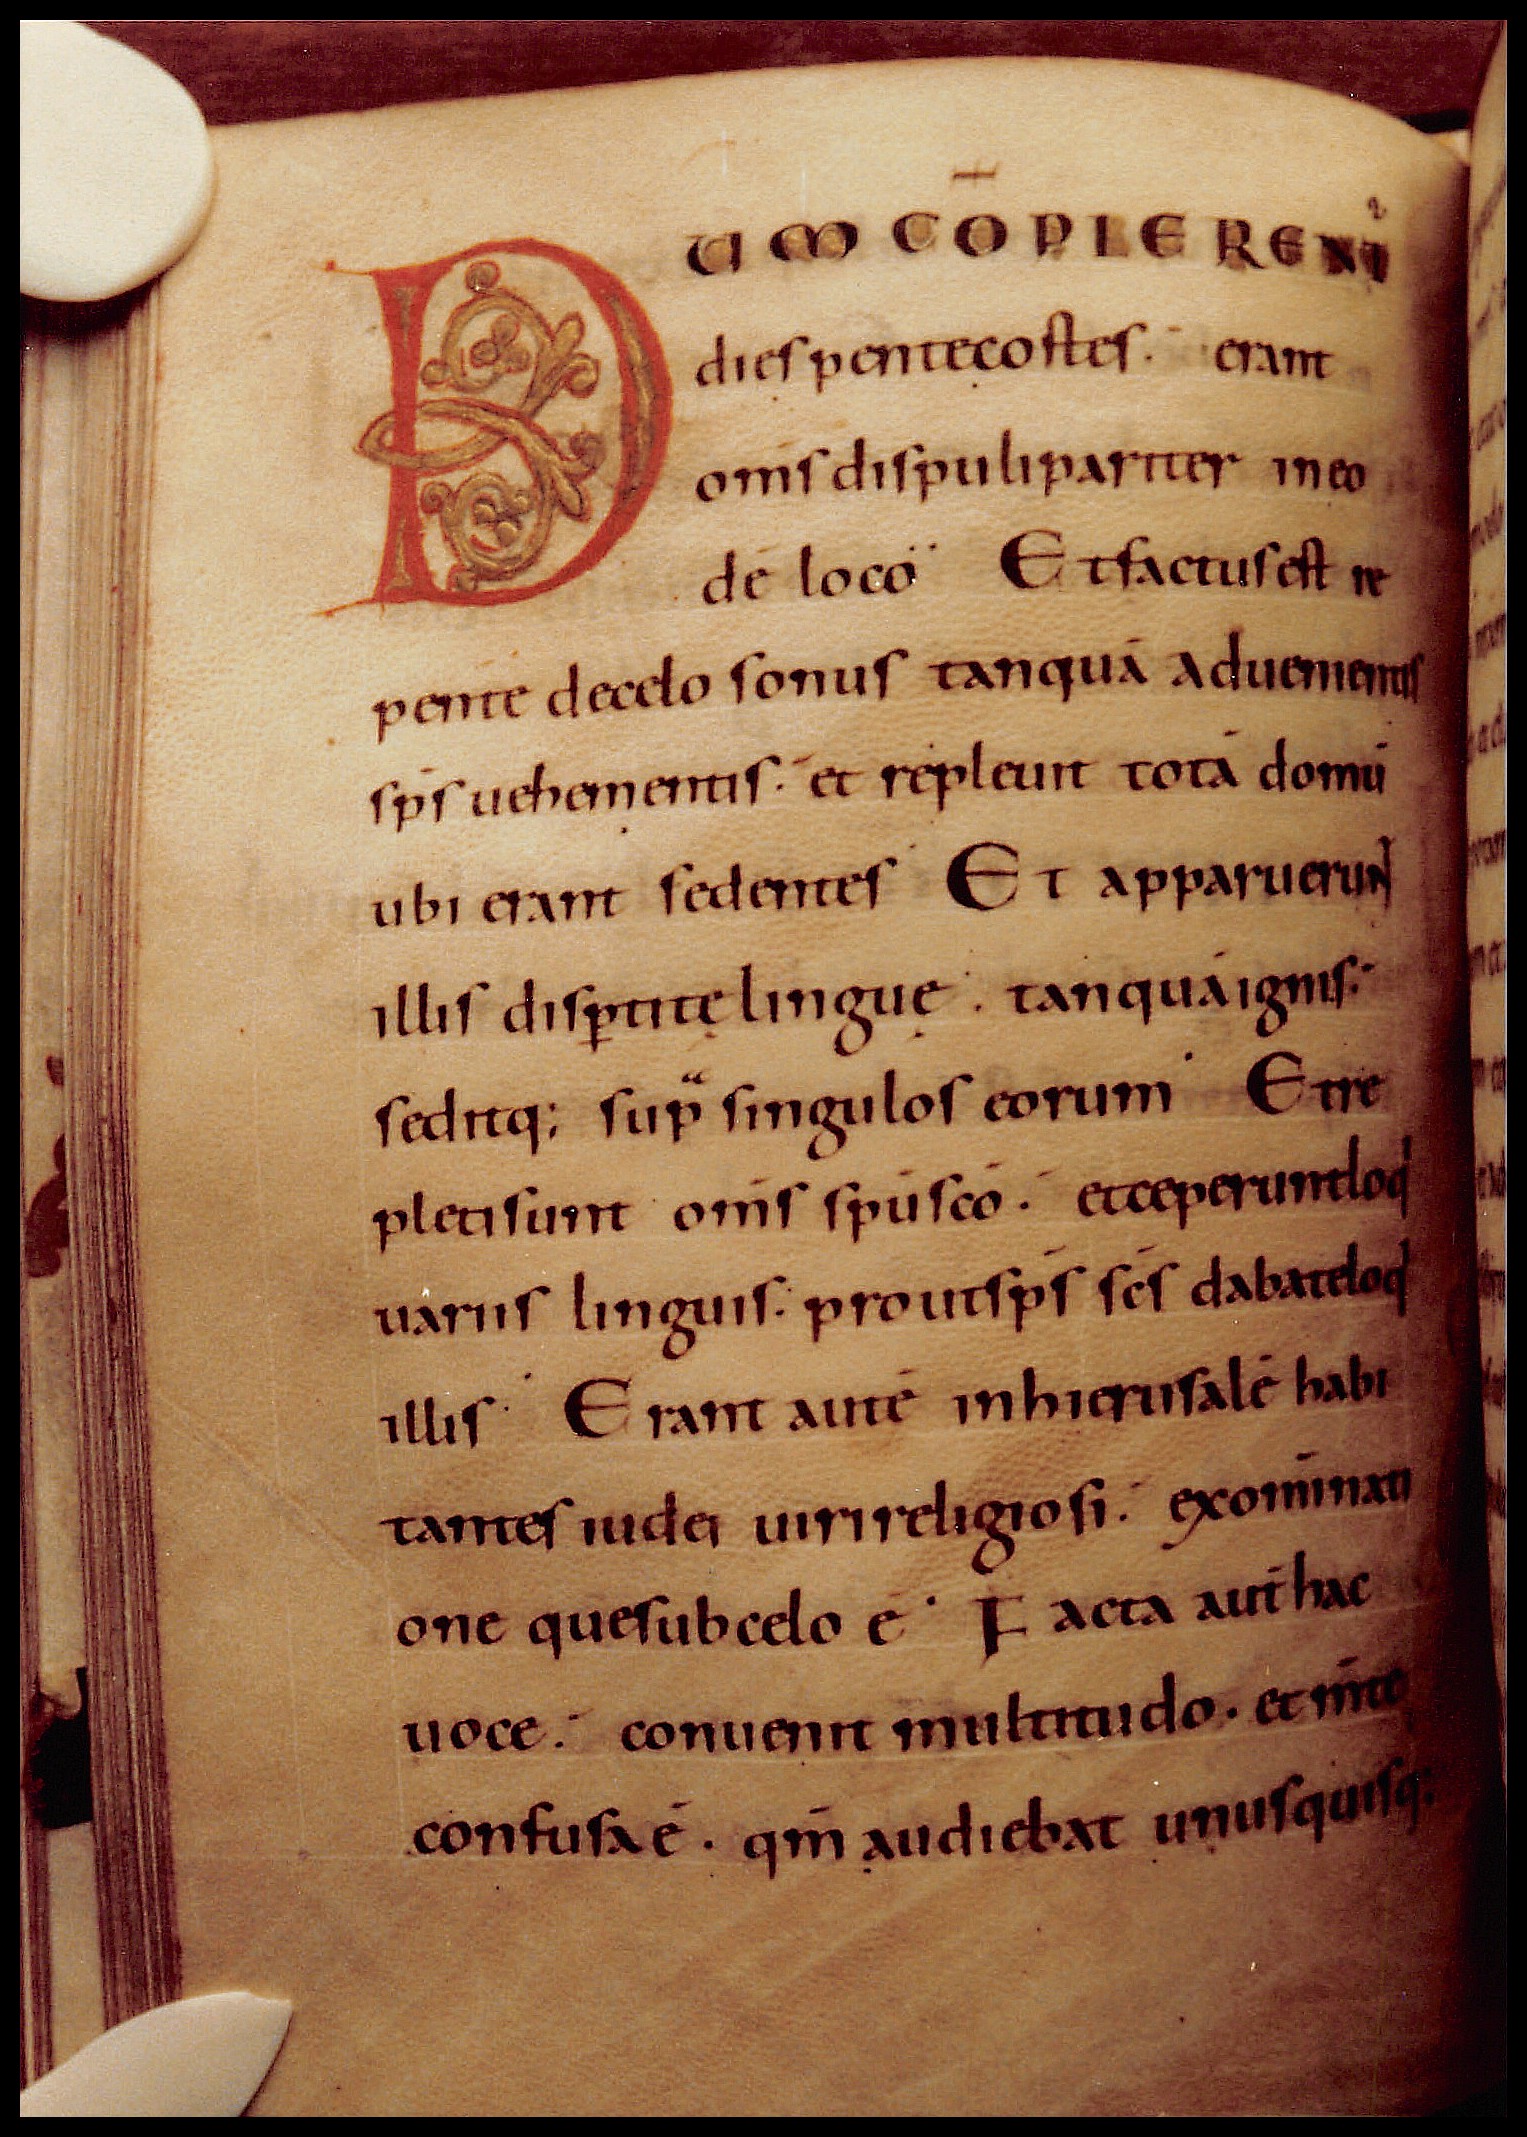 DUM CŌPLERENT᷑
dies pentecostes. erant
om̄s discipuli pariter in eo
dē loco Et factus est re
pente de celo sonus tanquā aduenientis
sp̄s uehementis. et repleuit totā domū
ubi erant sedentes Et apparuerunt
illis disꝑtitę linguę. tanquā ignis.
seditq; sup̄ singulos eorum Et re
pleti sunt om̄s sp̄u sc̄o. et ceperunt loq̄
uariis linguis. prout sp̄s sc̄s dabat eloq̄
illis Erant autē in hierusalē habi
tantes iudei uiri religiosi. ex om̄i nati
one que sub celo ē Facta aut̄ hac
uoce. conuenit multitudo. et m̄te
confusa ē. qm̄ audiebat unusquisq;